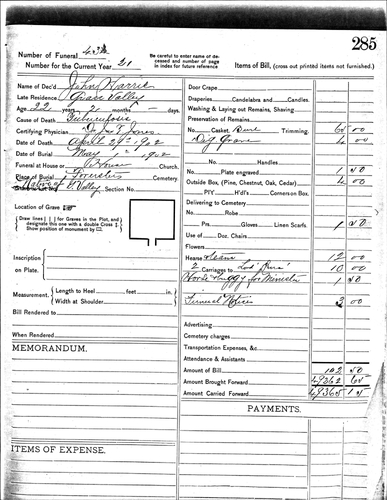 285
Number of Funeral
Number for the Current Year 21
Be careful to enter name of deceased and number of page in index for future reference
Items of Bill, (cross out printed items not furnished.)
Name of Dec'd John Harris
Late Residence Grass Valley
Age, 22 years 2 months – days
Cause of Death Tuberculosis
Certifying Physician Jones
Date of Death April 29th 1902
Date of Burial May 1st 1902
Funeral at House or House Church.
Place of Burial Foresters Cemetery.
Native of G. Valley, Section No.
Location of Grave
Draw lines for Graves in the Plot, and designate this one with a double Cross X
Show position of monument by
Inscription on Plate.
Measurement. Length to Heel feet in.
Width at Shoulder
Bill Rendered to
When Rendered
MEMORANDUM.
ITEMS OF EXPENSE.
Door Crape
Draperies Candelabra and Candles.
Washing and Laying out Remains, Shaving
Preservation of Remains
No. Casket, Trimming.
Dig Grave 4 00
No. Handles
Plate engraved 1 50
Outside Box, (Pine, Chestnut, Oak, Cedar) 4 00
PlyW H'dl's Corners on Box
Delivering to Cemetery
No. Robe
Prs. Gloves Linen Scarfs. 1 50
Use of Doz. Chairs
Flowers
Hearse 12 00
2 Carriages to 10 00
Horse & Buggy for Minister 1 50
Funeral Notices 3 00
Advertising
Cemetery charges
Transportation Expenses, &c
Attendance & Assistants
Amount of Bill 102 50
Amount Brought Forward
Amount Carried Forward
PAYMENTS.